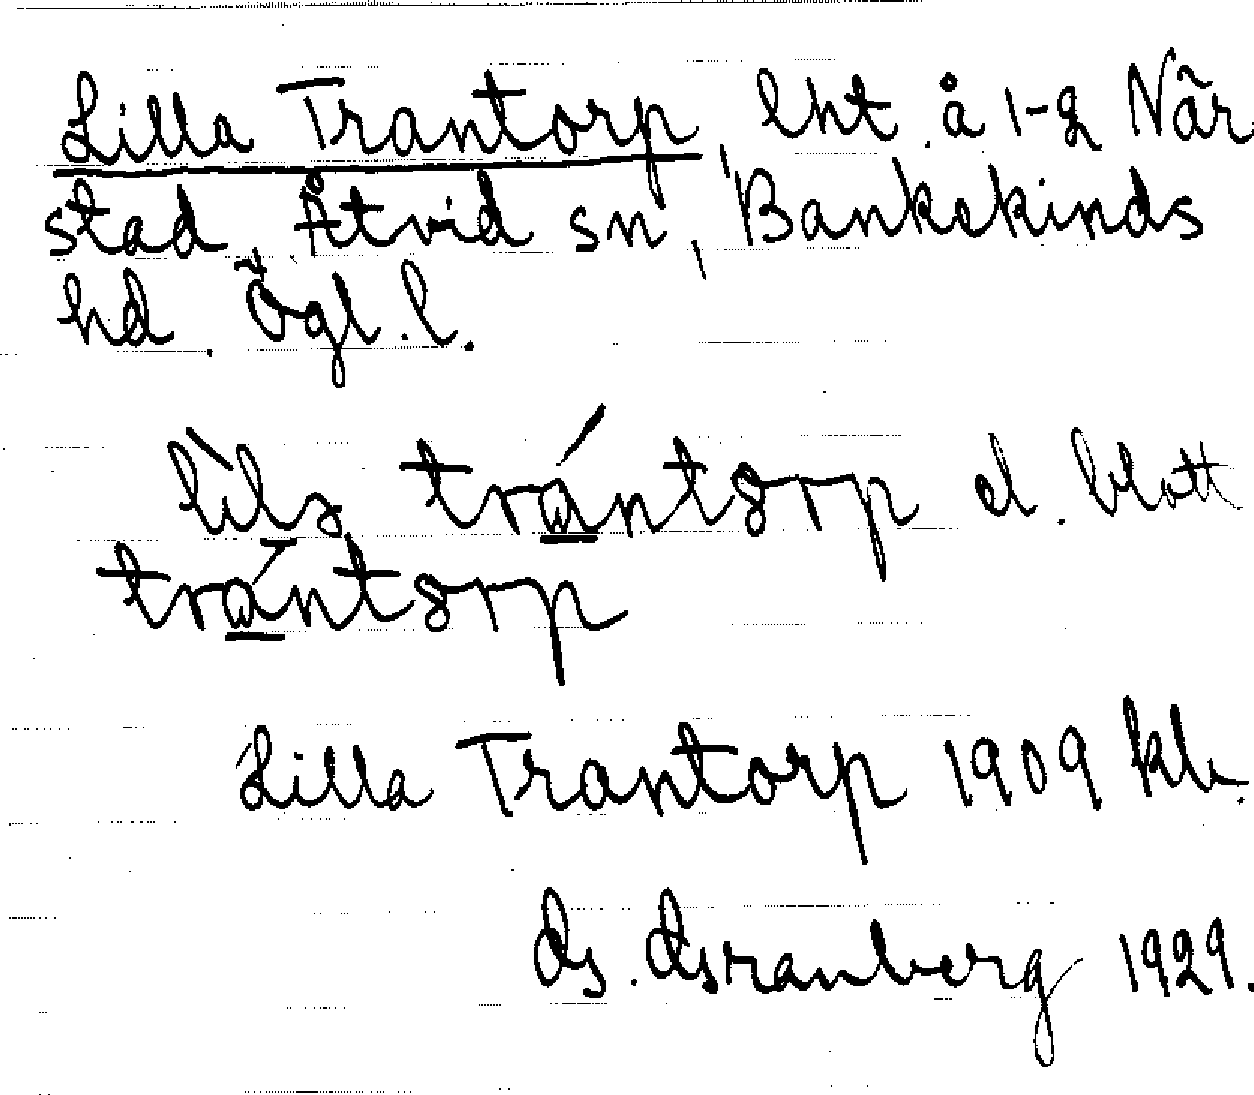 Lilla Trantorp, lht. å 1-g När
stad, Åtvid sn, Bankekinds
hd. Ögl. l.
trántorp el. blott
trántorp
Lilla Trantorp 1909 kb.
1929.